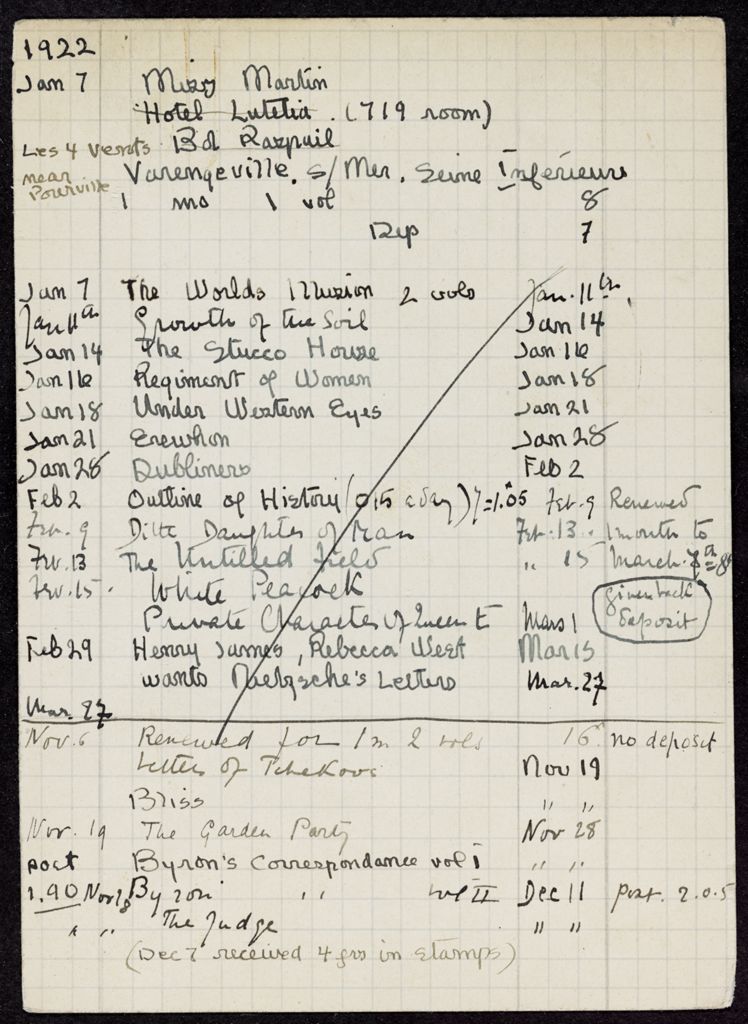 1922
Jan 7 Missy Martin
Hotel Lutetia. (719 room)
Les 4 Vents Bd Raspail
near Pourville Varengeville. s/Mer. Seine Inférieure
1 mo 1 vol 8
Dep 7
Jan 7 The Worlds Illusion 2 vols Jan. 11th.
Jan 11th Growth of the Soil Jan 14
Jan 14 The Stucco House Jan 16
Jan 16 Regiment of Women Jan 18
Jan 18 Under Western Eyes Jan 21
Jan 21 Erewhon Jan 28
Jan 28 Dubliners Feb 2
Feb 2 Outline of History (0,15 a day) 7=1.05 Feb. 9 Renewed
Feb. 9 Ditte Daughter of Man Feb. 13. 1 month to
Feb. 13 The Untilled Field " 15 March. 8th
Feb. 15. White Peacock given back
Private Character of Queen E Mars 1 deposit
Feb 29 Henry James, Rebecca West Mar 15
wants Nietzsche's Letters Mar. 27
Mar. 27
Nov. 6 Renewed for 1 m 2 vols 16. no deposit
Letters of Tchekov Nov 19
Bliss " "
Nov. 19 The Garden Party Nov 28
post Byron's Correspondance vol I " "
1.90 Nov 28 Byron " " vol II Dec 11 post. 2.0.5
" " The Judge " "
(Dec 7 received 4 frs in stamps)